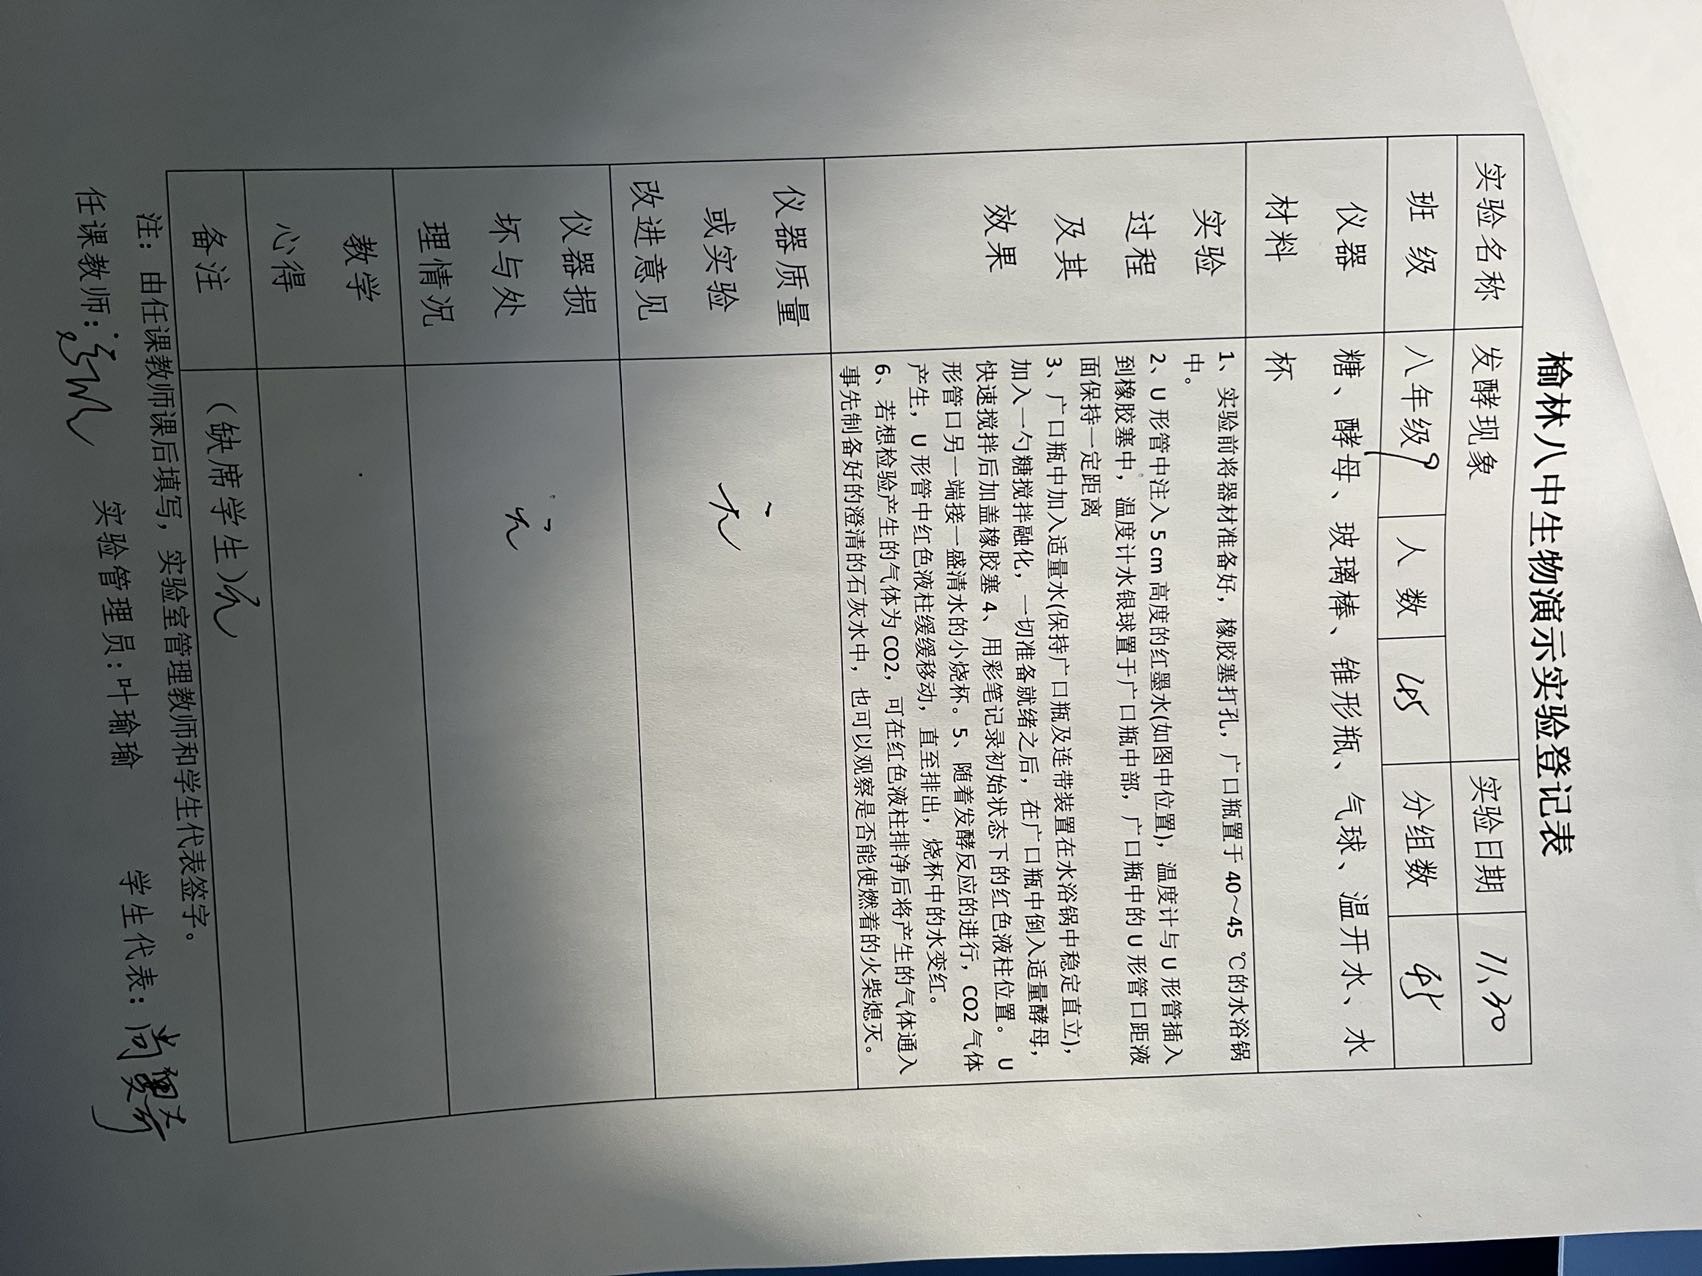 榆林八中生物演示实验登记表
实验名称 发酵现象 实验日期 11.30
班 级 八年级9 人 数 45 分组数
仪器 糖、酵母、玻璃棒、锥形瓶、气球、温开水、水
材料 杯
实验
过程
及其
效果
1、实验前将器材准备好，橡胶塞打孔，广口瓶置于 40～45 ℃的水浴锅
中。
2、U 形管中注入 5 cm 高度的红墨水(如图中位置)，温度计与 U 形管插入
到橡胶塞中，温度计水银球置于广口瓶中部，广口瓶中的 U 形管口距液
面保持一定距离
3、广口瓶中加入适量水(保持广口瓶及连带装置在水浴锅中稳定直立)，
加入一勺糖搅拌融化，一切准备就绪之后，在广口瓶中倒入适量酵母，
快速搅拌后加盖橡胶塞 4、用彩笔记录初始状态下的红色液柱位置。 U
形管口另一端接一盛清水的小烧杯。5、随着发酵反应的进行，CO2 气体
产生，U 形管中红色液柱缓缓移动，直至排出，烧杯中的水变红。
6、若想检验产生的气体为 CO2，可在红色液柱排净后将产生的气体通入
事先制备好的澄清的石灰水中，也可以观察是否能使燃着的火柴熄灭。
仪器质量
或实验 无
改进意见
仪器损
坏与处 无
理情况
教学
心得
备注 （缺席学生）无
注：由任课教师课后填写，实验室管理教师和学生代表签字。
任课教师： 实验管理员：叶瑜瑜 学生代表：